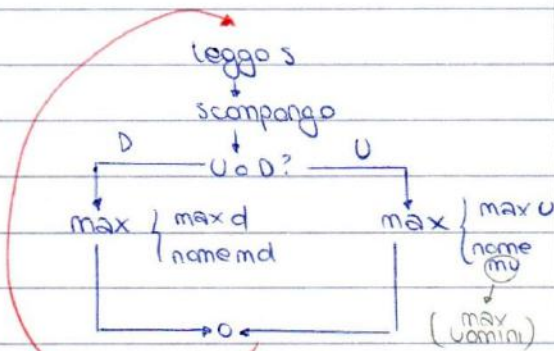 leggo s
scompongo
D U o D? U
max { max d max { max u
nome md nome
mu
O
(max
uomini)